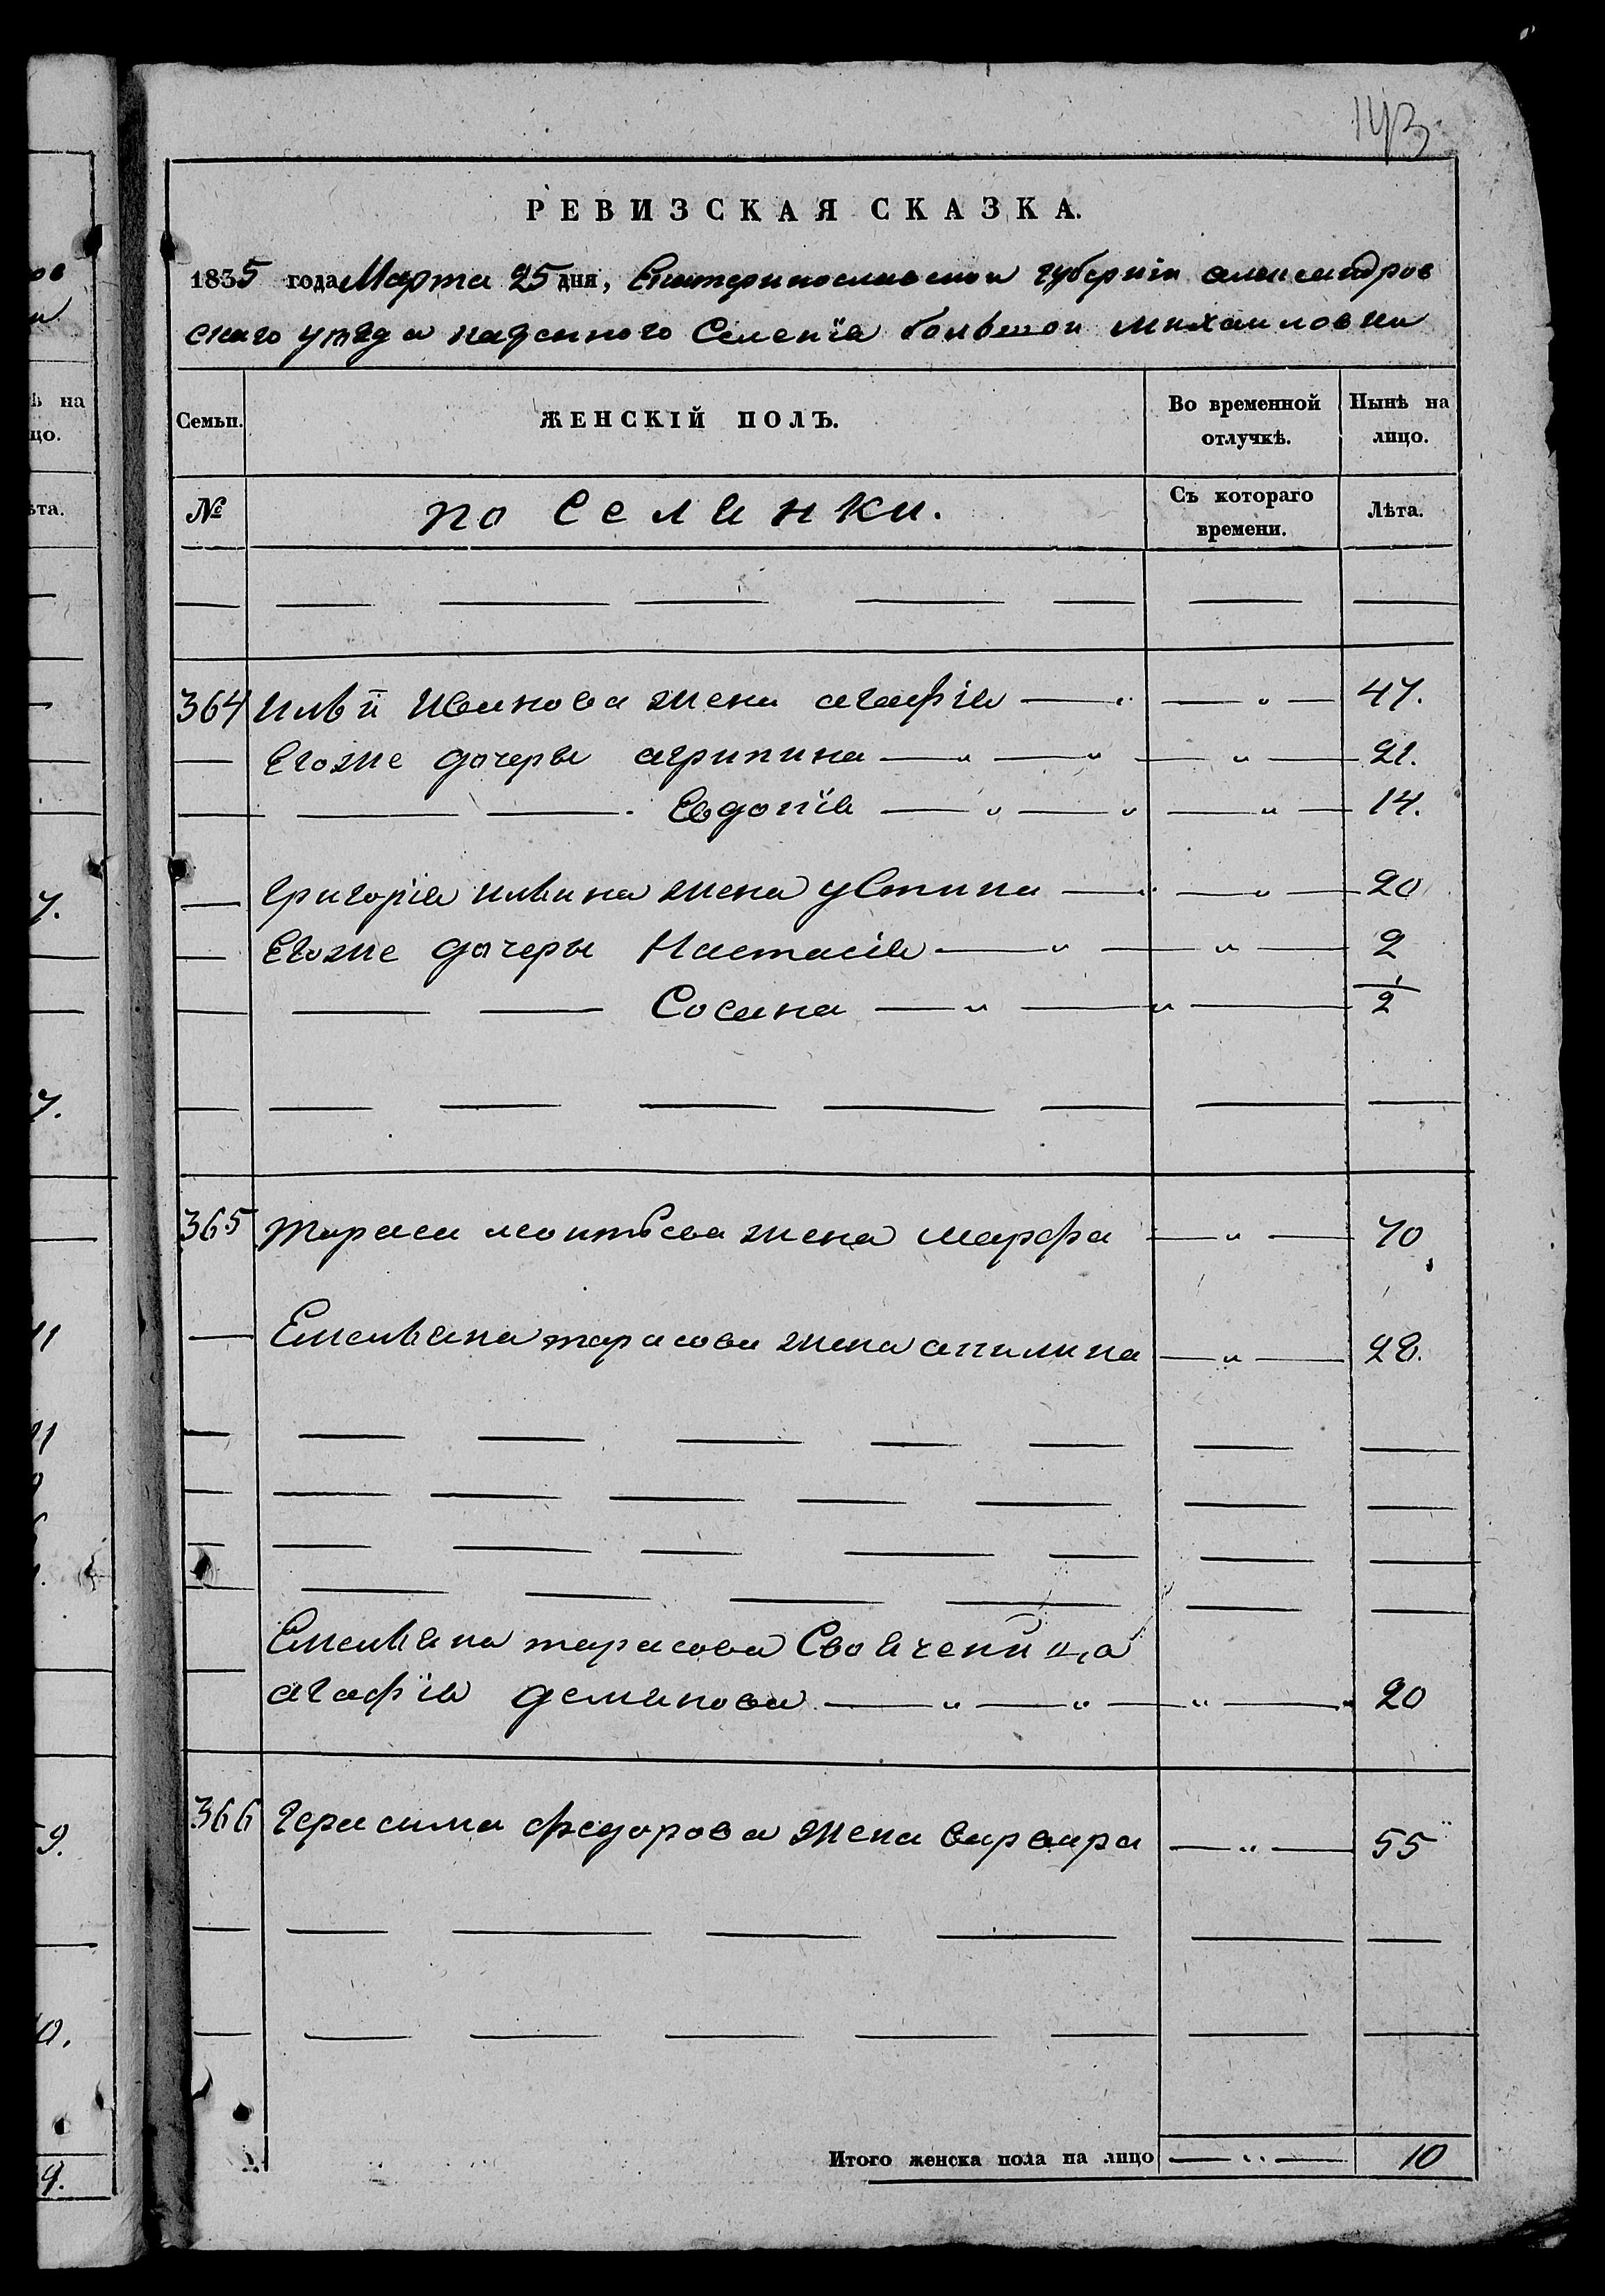 143
РЕВИЗСКАЯ СКАЗКА.
1835 года Марта 25 дня, Екатеринославской губернии александров
скаго уезда казенного Селения большой михайловки
Семьи.
ЖЕНСКІЙ ПОЛЪ.
Во временной отлучкѣ.
Нынѣ на лицо.
№
поселянки.
Съ котораго времени.
Лѣта.
364 Ильи Иванова жена агафия 47.
Егоже дочеры агрипина 21.
Евдокия 14.
григория ильина жена устина 20
Егоже дочеры Настасия 2
Сосана 1/2
365 тараса леонтьева жена марфа 70
Емельяна тарасова жена акилина 28.
Емельяна тарасова Своячениц,а
агафия демянова 20
366 герасима федорова жена варвара 55
Итого женска пола на лицо 10